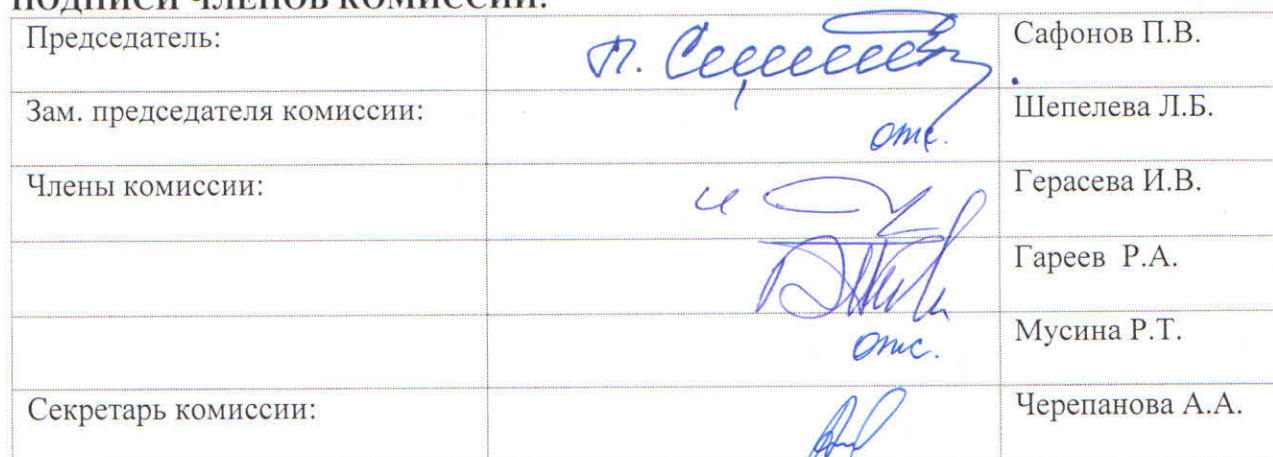 ПОДПИСИ ЧЛЕНОВ КОМИССИИ:
Председатель: Сафонов П.В.
Зам. председателя комиссии: отс. Шепелева Л.Б.
Члены комиссии: Герасева И.В.
Гареев Р.А.
отс. Мусина Р.Т.
Секретарь комиссии: Черепанова А.А.